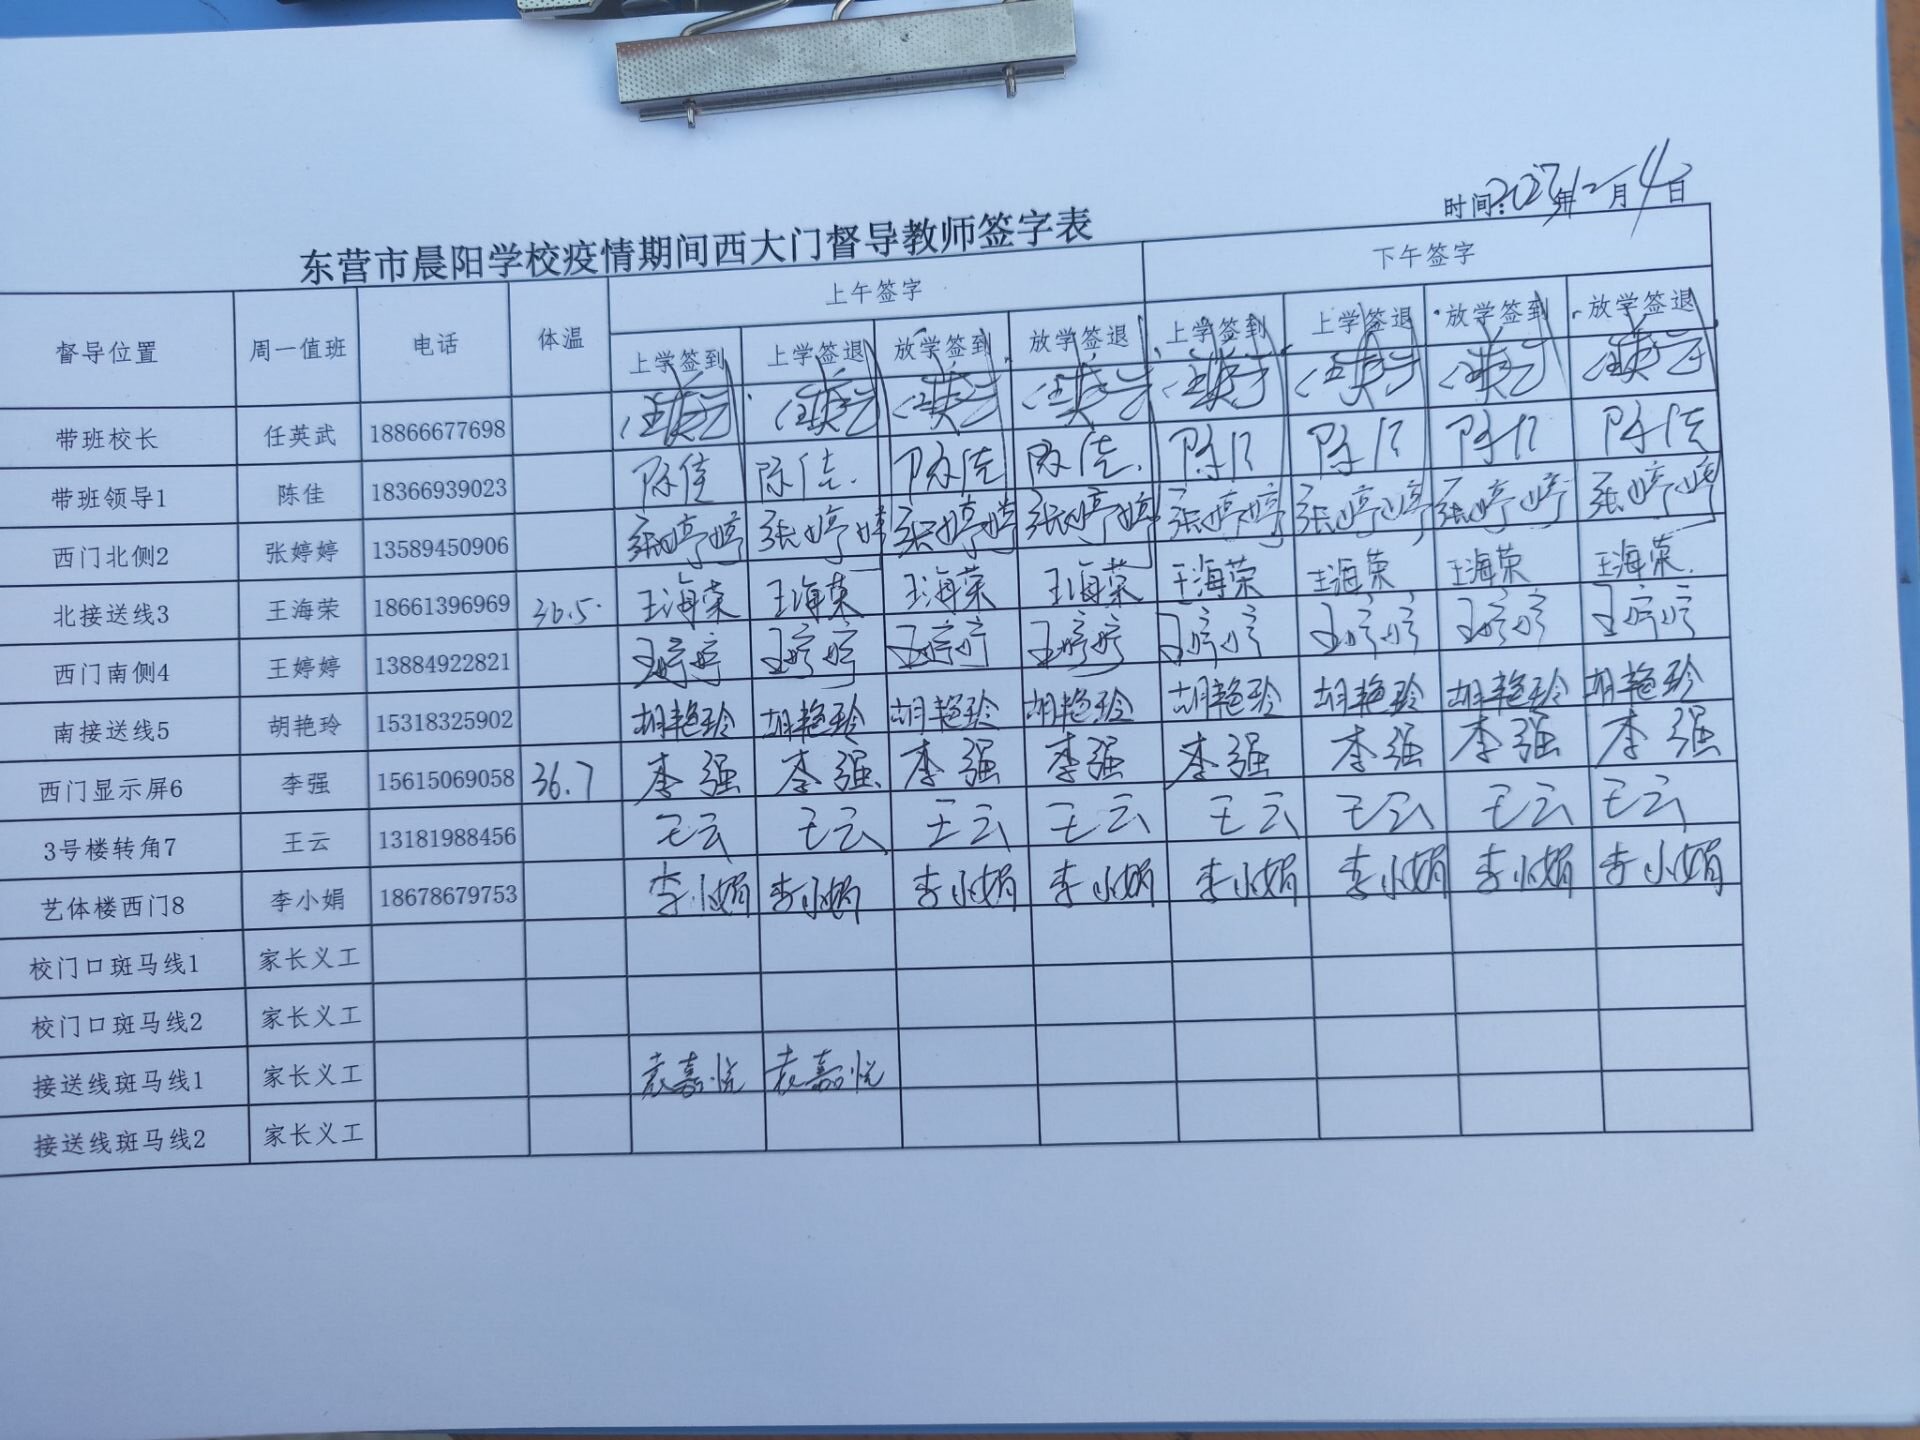 时间:2023年12月4日
东营市晨阳学校疫情期间西大门督导教师签字表
督导位置 周一值班 电话 体温 上午签字 下午签字
上学签到 上学签退 放学签到 放学签退 上学签到 上学签退 放学签到 放学签退
带班校长 任英武 18866677698 任英武 任英武 任英武 任英武 任英武 任英武 任英武 任英武
带班领导1 陈佳 18366939023 陈佳 陈佳 陈佳 陈佳 陈佳 陈佳 陈佳 陈佳
西门北侧2 张婷婷 13589450906 张婷婷 张婷婷 张婷婷 张婷婷 张婷婷 张婷婷 张婷婷 张婷婷
北接送线3 王海荣 18661396969 36.5 王海荣 王海荣 王海荣 王海荣 王海荣 王海荣 王海荣 王海荣
西门南侧4 王婷婷 13884922821 王婷婷 王婷婷 王婷婷 王婷婷 王婷婷 王婷婷 王婷婷 王婷婷
南接送线5 胡艳玲 15318325902 胡艳玲 胡艳玲 胡艳玲 胡艳玲 胡艳玲 胡艳玲 胡艳玲 胡艳玲
西门显示屏6 李强 15615069058 36.7 李强 李强 李强 李强 李强 李强 李强 李强
3号楼转角7 王云 13181988456 王云 王云 王云 王云 王云 王云 王云 王云
艺体楼西门8 李小娟 18678679753 李小娟 李小娟 李小娟 李小娟 李小娟 李小娟 李小娟 李小娟
校门口斑马线1 家长义工
校门口斑马线2 家长义工
接送线斑马线1 家长义工 袁嘉悦 袁嘉悦
接送线斑马线2 家长义工